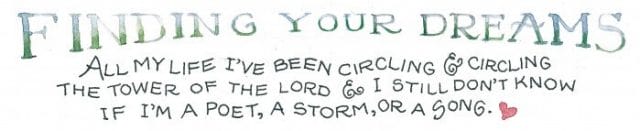 FINDING YOUR DREAMS
ALL MY LIFE I'VE BEEN CIRCLING & CIRCLING
THE TOWER OF THE LORD & I STILL DON'T KNOW
IF I'M A POET, A STORM, OR A SONG.